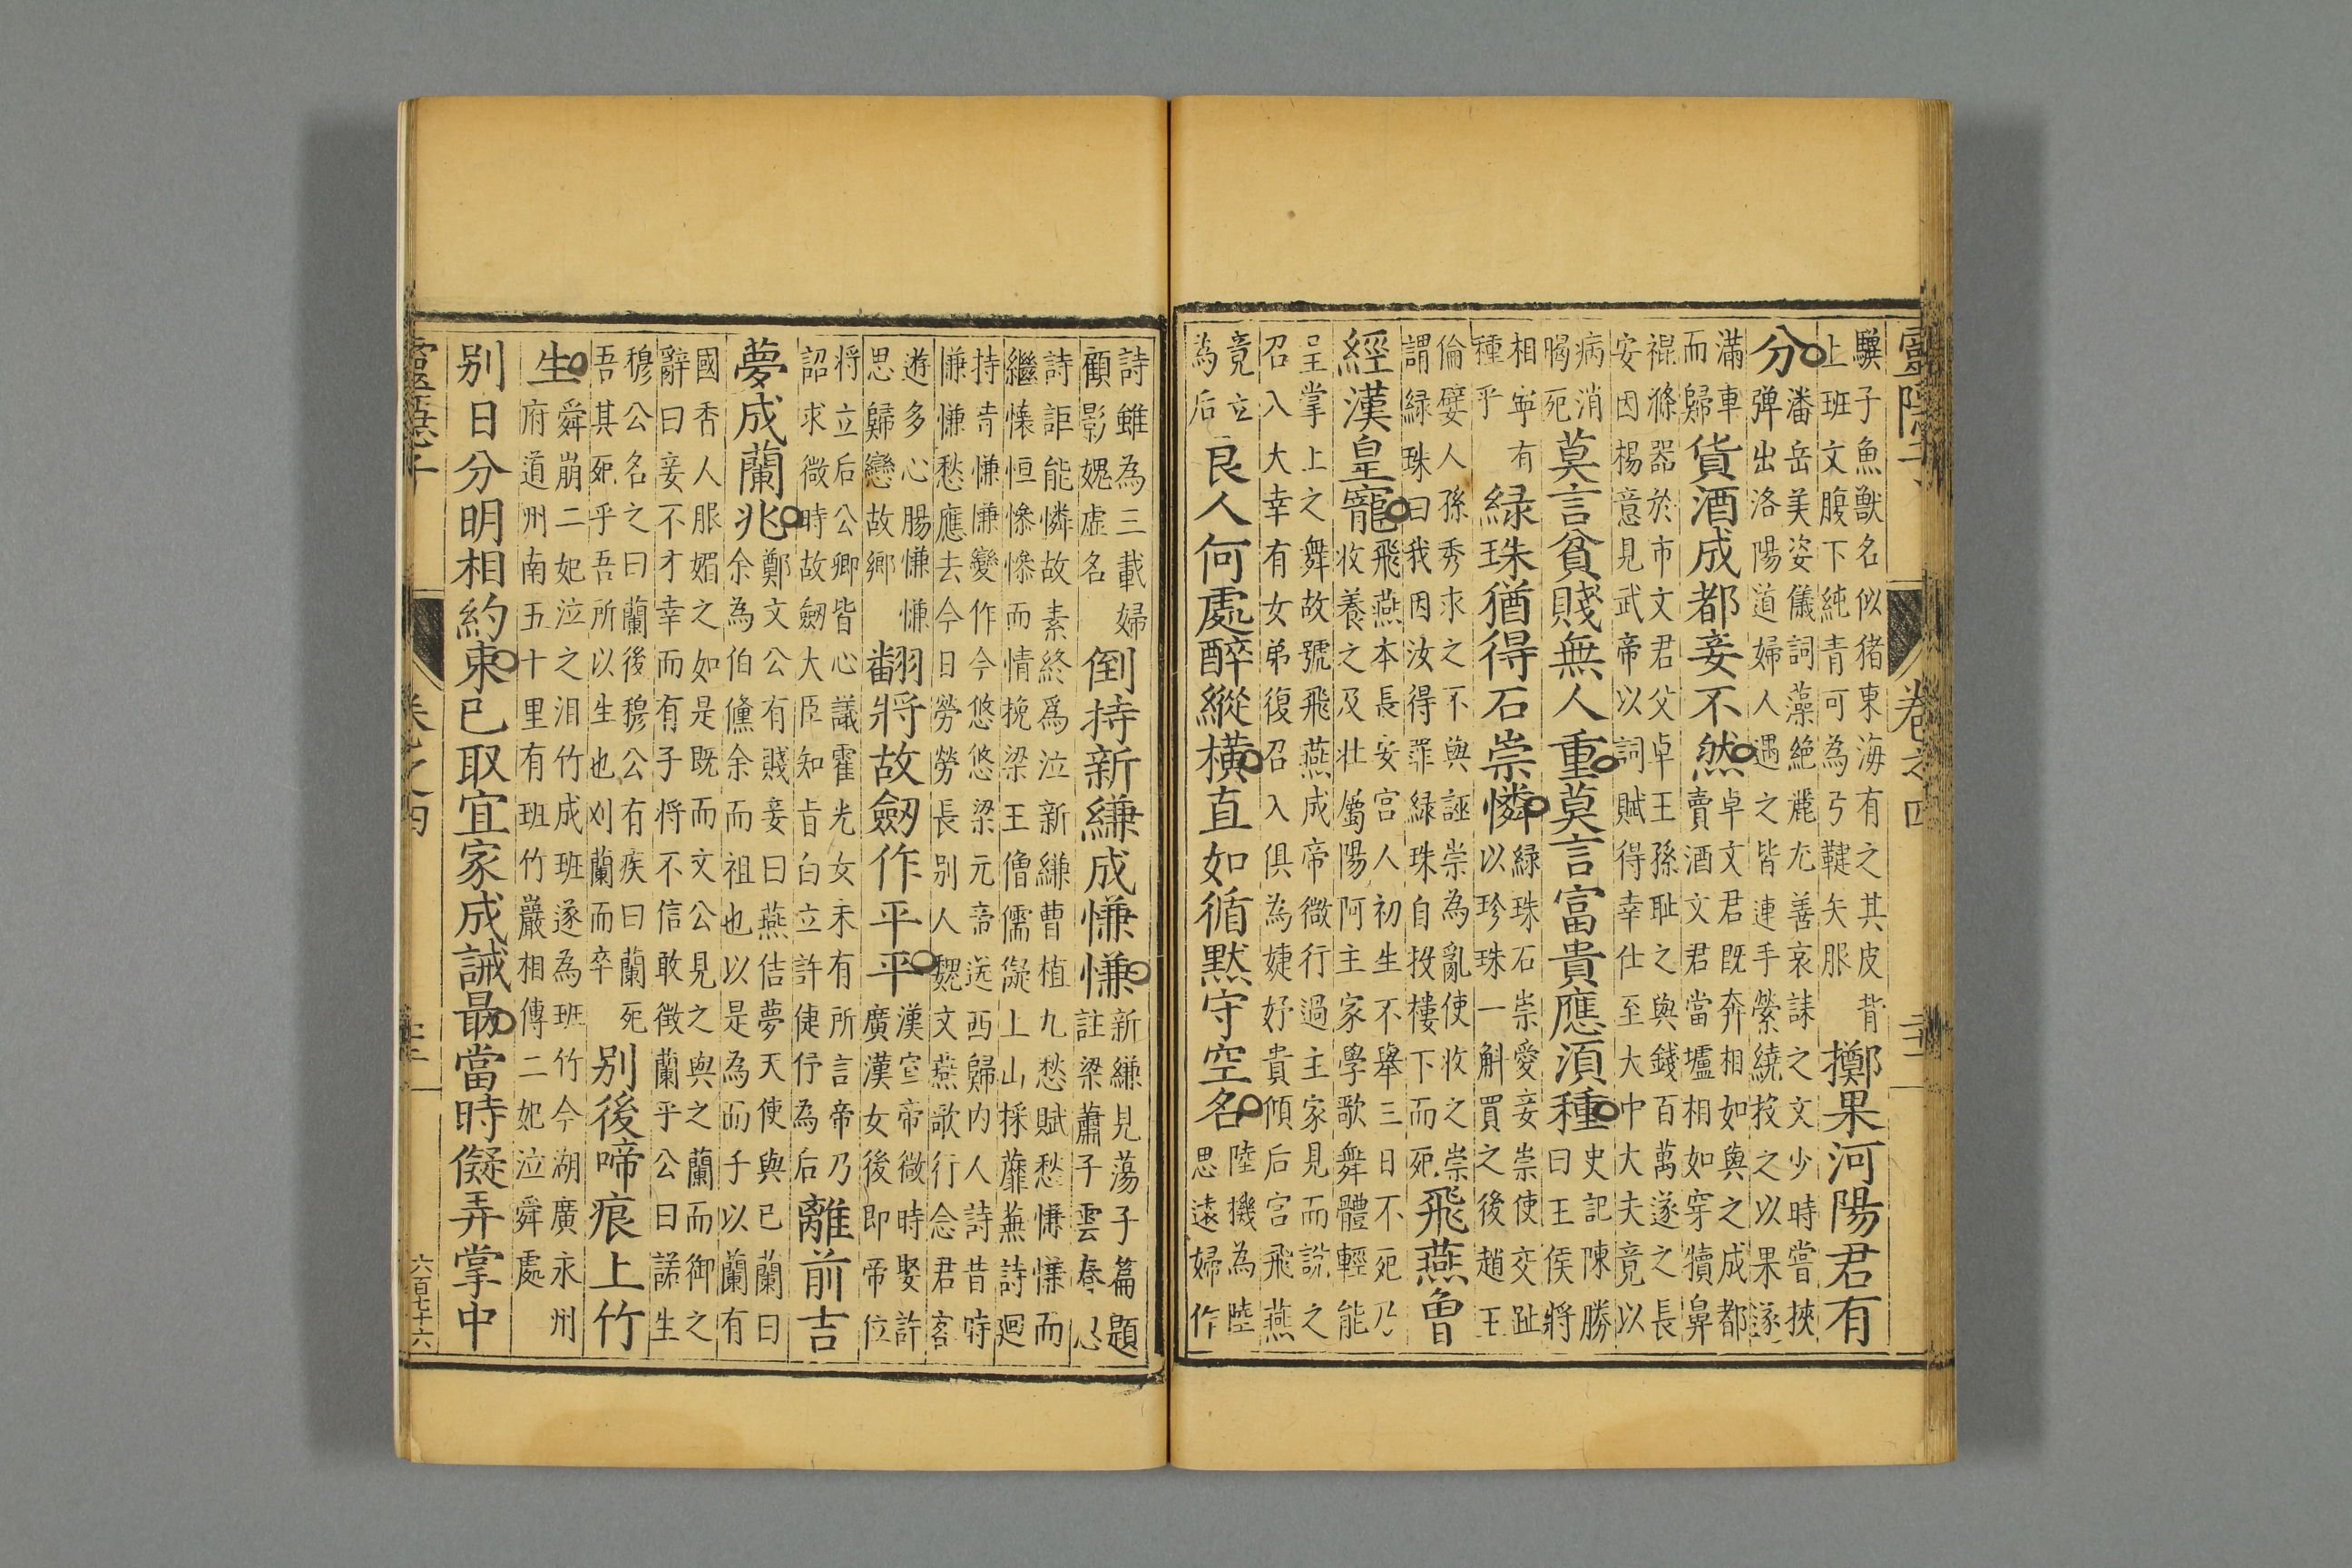 驥子魚獸名似猪東海有之其皮背
上班文腹下純青可為弓鞬矢服
擲果河陽君有
分
潘岳美姿儀詞藻絶麗尤善哀誄之文少時嘗挾
彈出洛陽道婦人遇之皆連手縈繞投之以果遂
滿車
而歸
貨酒成都妾不然
卓文君既奔相如與之成都
賣酒文君當壚相如穿犢鼻
裩滌器於市文君父卓王孫耻之與錢百萬遂之長
安因楊意見武帝以詞賦得幸仕至大中大夫竟以
病消
暍死
莫言貧賤無人重莫言富貴應湏種
史記陳勝
曰王侯將
相寕有
種乎
緑珠猶得石崇憐
緑珠石崇愛妾崇使交趾
以珍珠一斛買之後趙王
倫嬖人孫秀求之不與誣崇為亂使收之崇
謂緑珠曰我因汝得罪緑珠自投樓下而死
飛燕曾
經漢皇寵
飛燕本長安宫人初生不舉三日不死乃
收養之及壮屬陽阿主家學歌舞體輕能
呈掌上之舞故號飛燕成帝微行過主家見而説之
召入大幸有女弟復召入俱為婕妤貴傾后宫飛燕
竟立
為后
良人何處醉縱横直如循黙守空名
陸機為陸
思遠婦作
詩雖為三載婦
顧影媿虚名
倒持新縑成慊慊
新縑見蕩子篇題
註梁蕭子雲春思
詩詎能憐故素終爲泣新縑曹植九愁賦愁慊慊而
繼懐恒慘慘而情挽梁王僧儒儗上山採蘼蕪詩廻
持昔慊慊變作今悠悠梁元帝送西歸内人詩昔時
慊慊愁應去今日勞勞長别人魏文燕歌行念君客
遊多心腸慊慊
思歸戀故鄉
翻將故劒作平平
漢宣帝微時娶許
廣漢女後即帝位
將立后公卿皆心議霍光女未有所言帝乃
詔求微時故劒大臣知旨白立許倢伃為后
離前吉
夢成蘭兆
鄭文公有賤妾曰燕佶夢天使與已蘭曰
余為伯鯈余而祖也以是為而子以蘭有
國香人服媚之如是既而文公見之與之蘭而御之
辭曰妾不才幸而有子将不信敢徴蘭乎公曰諾生
穆公名之曰蘭後穆公有疾曰蘭死
吾其死乎吾所以生也刈蘭而卒
别後啼痕上竹
生
舜崩二妃泣之泪竹成班遂為班竹今湖廣永州
府道州南五十里有班竹巖相傳二妃泣舜處
别日分明相約束已取宜家成誡朂當時儗弄掌中
卷之四
六百七十六